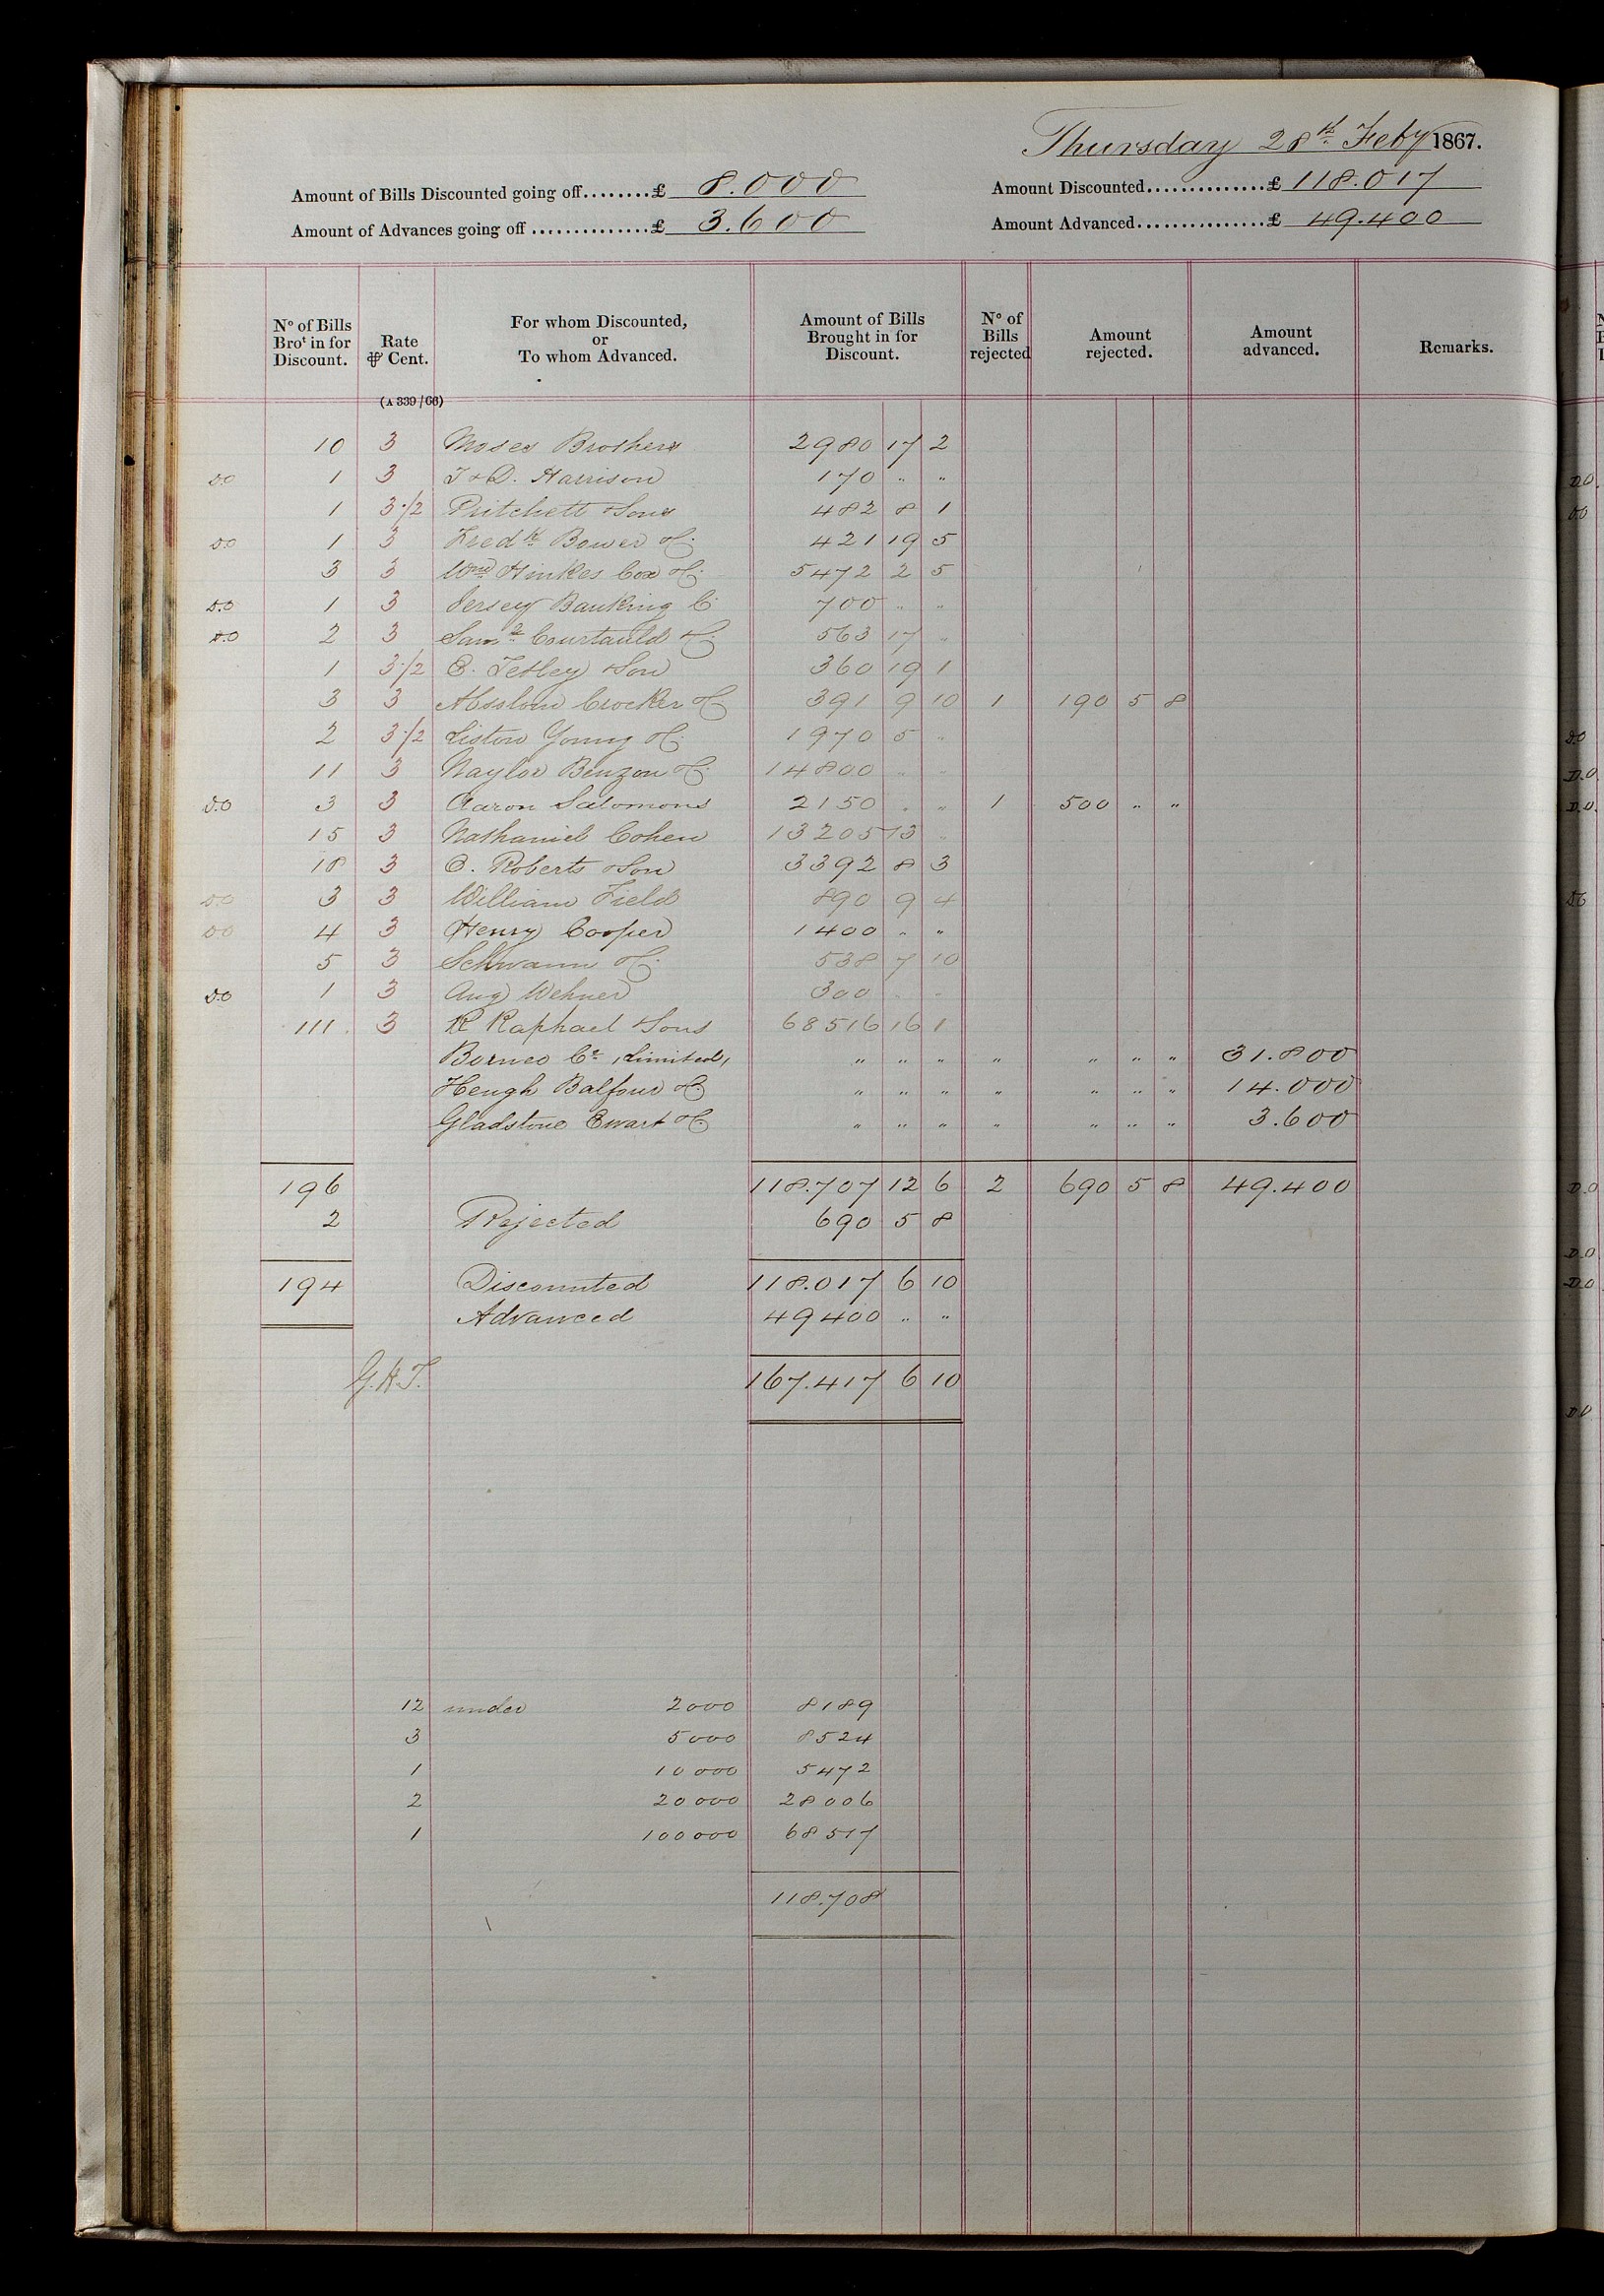 Thursday 28th Feby 1867.
Amount of Bills Discounted going off........£ 8.000 Amount Discounted..............£ 118.017
Amount of Advances going off ..............£ 3.600 Amount Advanced...............£ 49.400
No of Bills Brot in for Discount. Rate ⅌ Cent. For whom Discounted, or To whom Advanced. Amount of Bills Brought in for Discount. No of Bills rejected Amount rejected. Amount advanced. Remarks.
(A 339/66)
10 3 Moses Brothers 2980 17 2
D.O 1 3 T & D. Harrison 170 " "
1 3·/2 Pritchett & Sons 482 8 1
D.O 1 3 Fredk Bower & Co 421 19 5
3 3 Wm Hinkes Cox & Co 5472 2 5
D.O 1 3 Jersey Banking Co 700 " "
D.O 2 3 Saml Courtauld & Co 563 17 "
1 3·/2 E. Tetley & Son 360 19 1
3 3 Crocker & Co 391 9 10 1 190 5 8
2 3·/2 Liston Young & Co 1970 5 "
11 3 Naylor Benzon & Co 14800 " "
D.O 3 3 Aaron Salomons 2150 " " 1 500 " "
15 3 Nathaniel Cohen 13205 13 "
18 3 E. Roberts & Son 3392 8 3
D.O 3 3 William Field 890 9 4
D.O 4 3 Henry Cooper 1400 " "
5 3 Schwann & Co 538 7 10
D.O 1 3 Aug Wehner 300 " "
111 3 R Raphael & Sons 68516 16 1
Borneo Co (Limited) " " " " " " " 31.800
Heugh Balfour & Co " " " " " " " 14.000
Gladstone Ewart & Co " " " " " " " 3.600
196 118.707 12 6 2 690 5 8 49.400
2 Rejected 690 5 8
194 Discounted 118.017 6 10
Advanced 49400 " "
G.H.T. 167.417 6 10
12 under 2000 8189
3 5000 8524
1 10000 5472
2 20000 28006
1 100000 68517
118.708